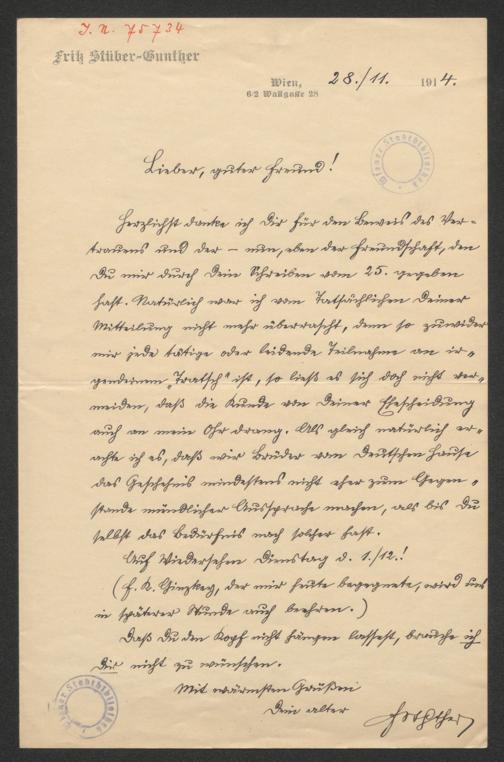 J. N. 75734
Fritz Stüber-Gunther
Wien, 28./11. 1914.
6/2 Wallgasse 28
Wiener Stadtbibliothek
Lieber, guter Freund!
Herzlichst danke ich Dir für den Beweis des Ver-
trauens und der – nun, eben der Freundschaft, den
Du mir durch Dein Schreiben vom 25. gegeben
hast. Natürlich war ich vom Tatsächlichen Deiner
Mitteilung nicht mehr überrascht, denn so zuwider
mir jede tätige oder leidende Teilnahme an ir-
gendeinem „Tratsch“ ist, so ließ es sich doch nicht ver-
meiden, daß die Kunde von Deiner Ehescheidung
auch an mein Ohr drang. Als gleich natürlich er-
achte ich es, daß wir Brüder vom Deutschen Hause
das Geschehnis mindestens nicht eher zum Gegen-
stande mündlicher Aussprache machen, als bis Du
selbst das Bedürfnis nach solcher hast.
Auf Wiedersehen Dienstag d. 1./12.!
(F. K. Ginzkey, der mir heute begegnete, wird uns
in späterer Stunde auch beehren.)
Daß Du den Kopf nicht hängen lassest, brauche ich
Dir nicht zu wünschen.
Mit wärmsten Grüßen
Dein alter
Wiener Stadtbibliothek